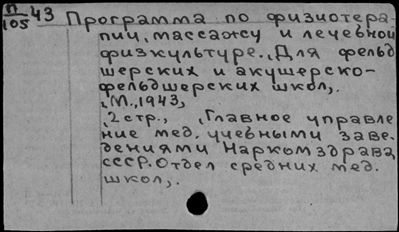 П/105 43 Программа по физиотера-
пии, массажу и лечебной
физкультуре., Для фельд
шерских и акушерско-
фельдшерских школ,.
,М.,1943,
,2 стр., ,Главное управле
ние мед. учебными заве-
дениями Наркомздрава
СССР. Отдел средних мед.
школ,.